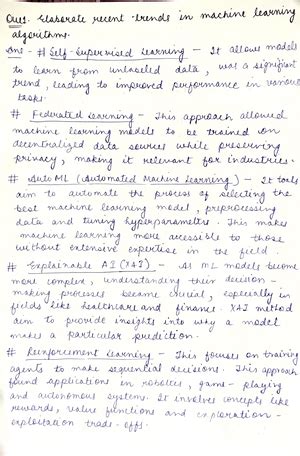 Ques. Elaborate recent trends in machine learning
algorithms.
Ans - # Self-Supervised Learning - It allows models
to learn from unlabeled data, was a significant
trend, leading to improved performance in various
tasks.
# Federated Learning - This approach allowed
machine learning models to be trained on
decentralized data sources while preserving
privacy, making it relevant for industries.
# AutoML (Automated Machine Learning) - It tools
aim to automate the process of selecting the
best machine learning model, preprocessing
data and tuning hyperparameters. This makes
machine learning more accessible to those
without extensive expertise in the field.
# Explainable AI (XAI) - As ML models become
more complex, understanding their decision-
making processes became crucial, especially in
fields like healthcare and finance. XAI method
aim to provide insights into why a model
makes a particular prediction.
# Reinforcement Learning - This focuses on training
agents to make sequential decisions. This approach
found applications in robotics, game-playing
and autonomous systems. It involves concepts like
rewards, value functions and exploration-
exploitation trade-offs.